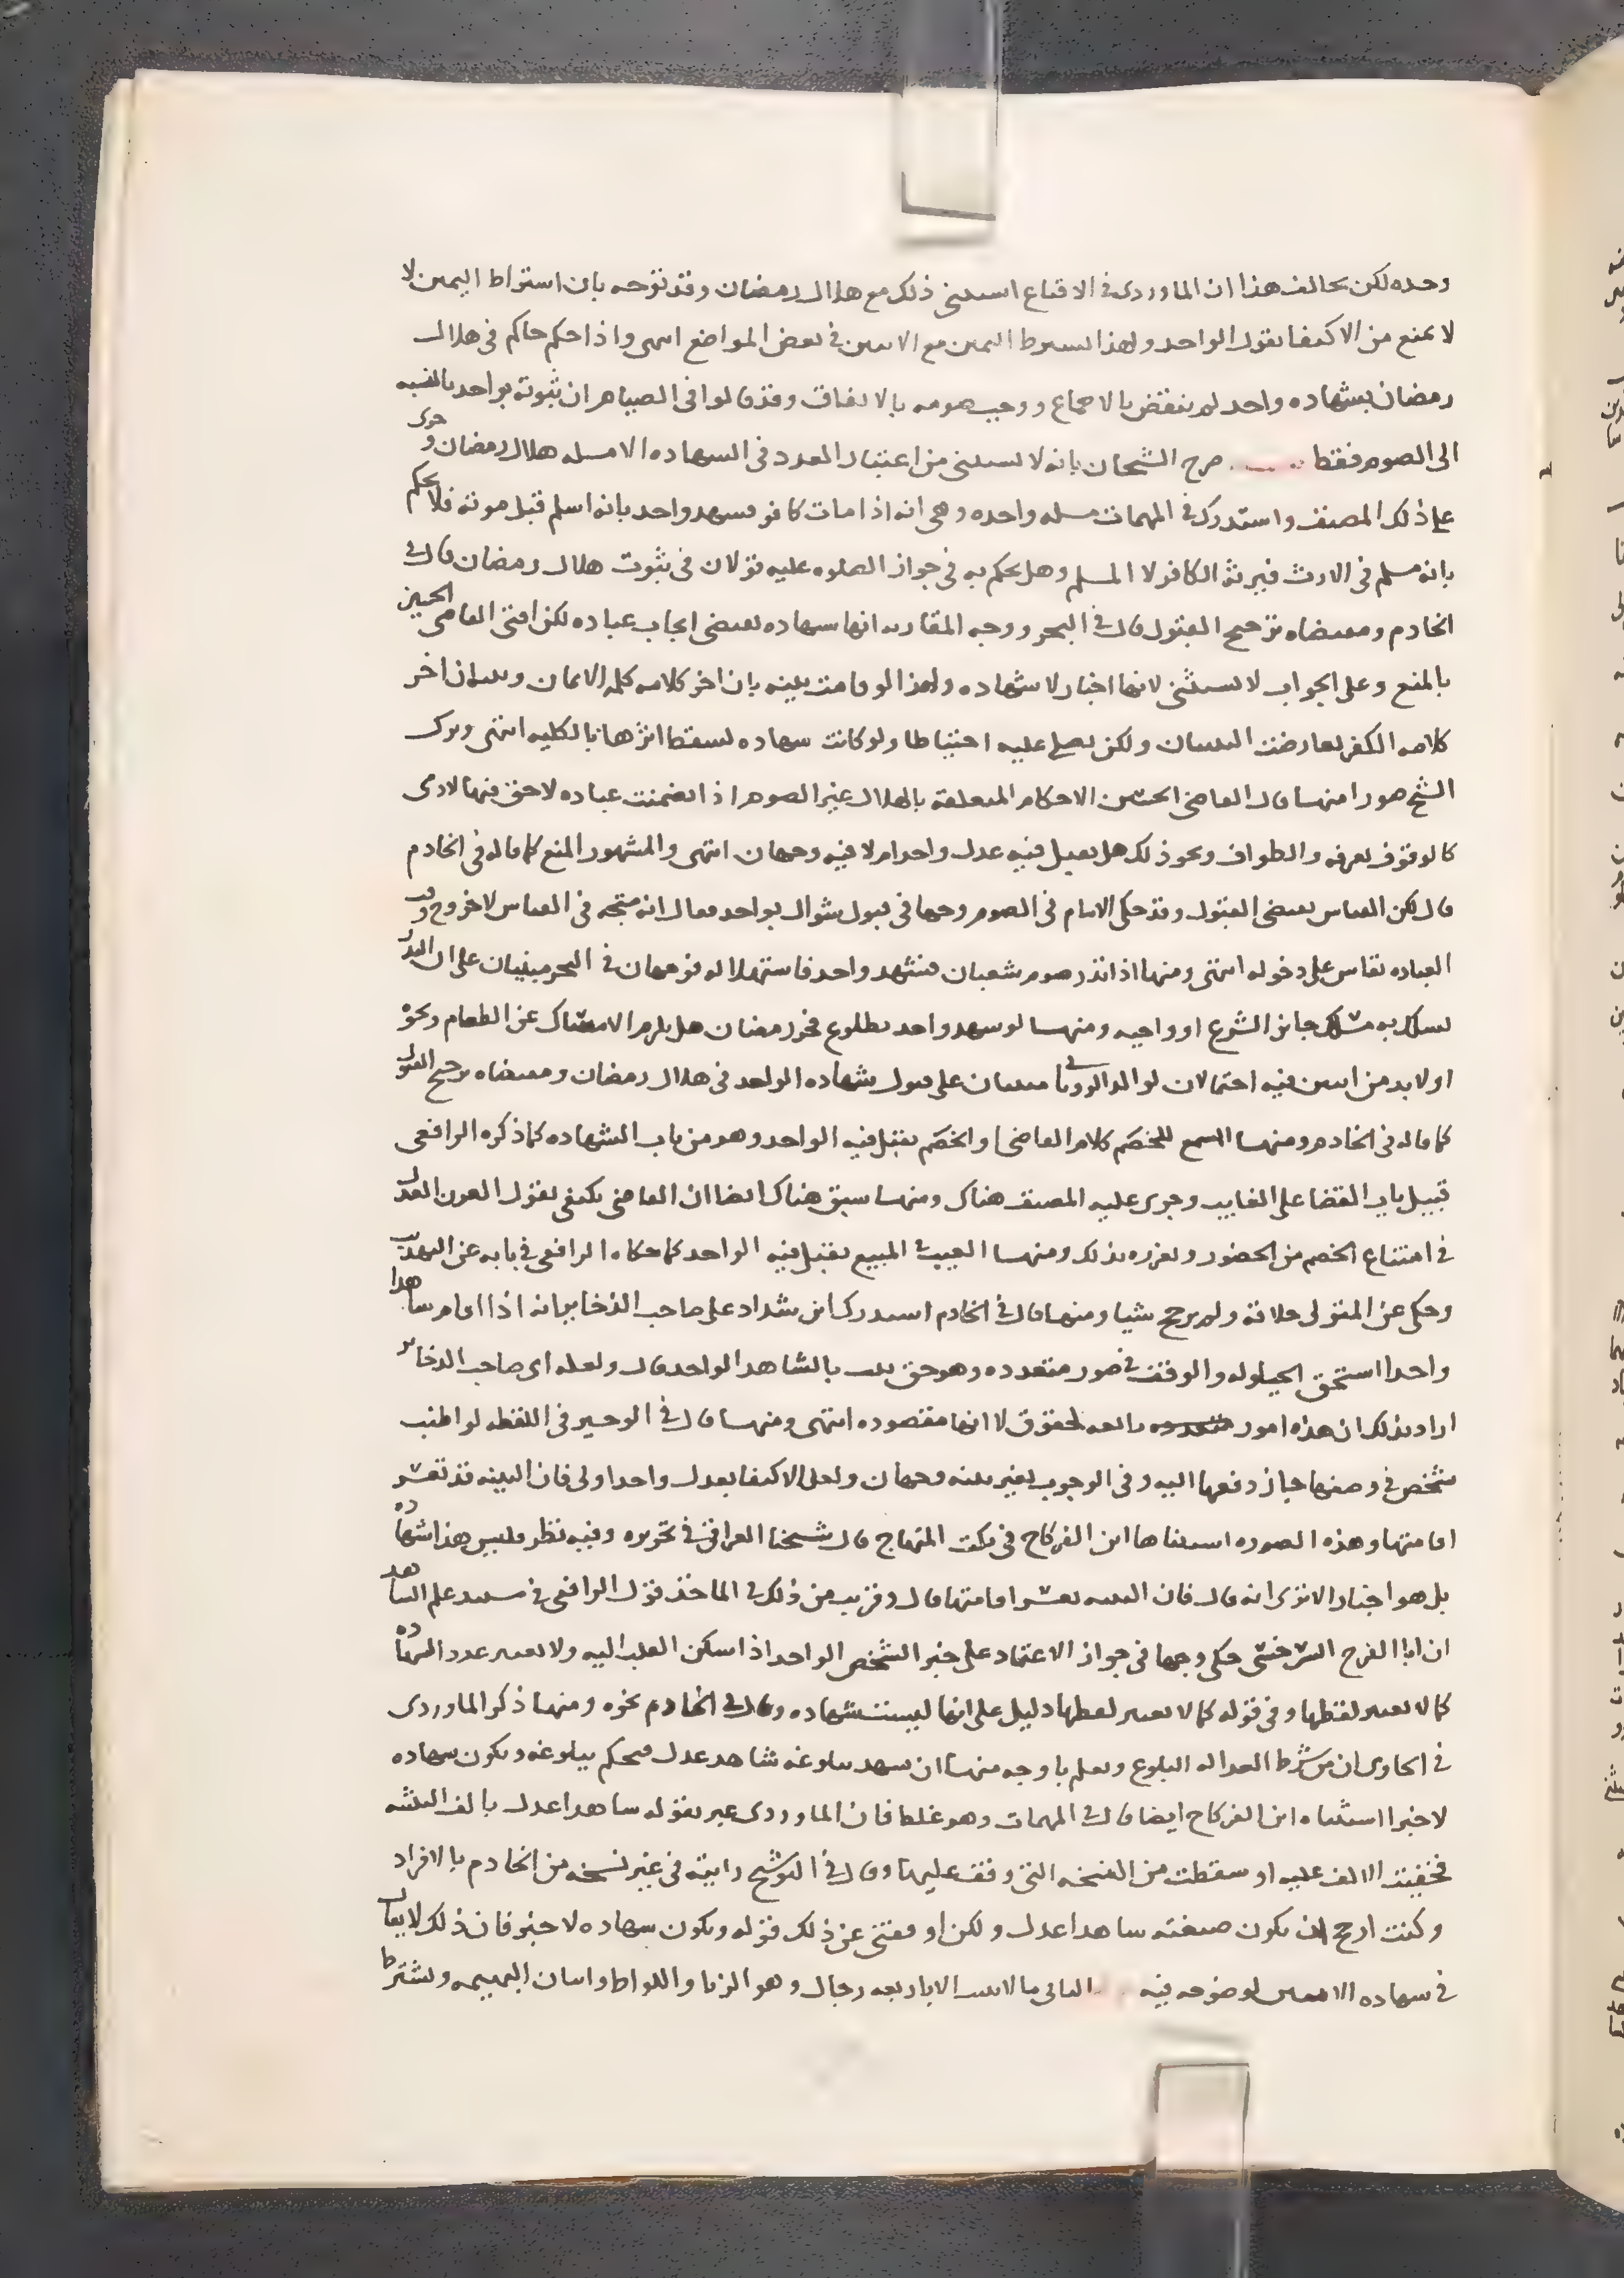 وحده لكن يخالف هذا ان الماوردى فى الاقناع استثنى ذلك مع هلال رمضان وقد توجه بان اشتراط اليمين لا
لا يمنع من الاكتفا بقول الواحد ولهذا يشترط اليمين مع الاثنين فى بعض المواضع انتهى واذا حكم حاكم فى هلال
رمضان بشهاده واحد لم ينقض بالاجماع ووجب صومه بالاتفاق وقد قالوا فى الصيام ان ثبوته بواحد بالنسبه
الى الصوم فقط صرح الشيخان بانه لا يستثنى من اعتبار العدد فى الشهاده الا مسله هلال رمضان وجرى
على ذلك المصنف واستدرك فى المهمات مسله واحده وهى انه اذا مات كافر فشهد واحد بانه اسلم قبل موته فلا يحكم
بانه مسلم فى الارث فيرثه الكافر لا المسلم وهل يحكم به فى جواز الصلوه عليه قولان فى ثبوت هلال رمضان قال فى
الخادم ومقتضاه ترجيح القبول قال فى البحر ووجه المقاربه انها شهاده تقتضى ايجاب عباده لكن افتى القاضى الحسين
بالمنع وعلى الجواب لا يستثنى لانها اخبار لا شهاده ولهذا لو قامت بينه بان اخر كلامه كلمه الايمان وبينه بان اخر
كلامه الكفر تعارضت البينتان ولكن يصلى عليه احتياطا ولو كانت شهاده لسقط اثرها بالكليه انتهى وترك
الشيخ صورا منها قال القاضى الحسين الاحكام المتعلقه بالهلال غير الصوم اذا تضمنت عباده لا حق فيها لادمى
كالوقوف بعرفه والطواف ونحو ذلك هل يقبل فيه عدل واحد ام لا فيه وجهان انتهى والمشهور المنع كما قاله فى الخادم
قال لكن القياس يقتضى القبول وقد حكى الامام فى الصوم وجها فى قبول شوال بواحد فقال انه متجه فى القياس لاخر وقت
العباده تقاس على دخوله انتهى ومنها اذا نذر صوم شعبان فشهد واحد فاستهلاله فوجهان فى البحر مبنيان على ان النذر
يسلك به مسلك جايز الشرع او واجبه ومنها لو شهد واحد بطلوع فجر رمضان هل يلزم الامساك عن الطعام ونحوه
او لا بد من اثنين فيه احتمالان لوالد الرويانى مبنيان على قبول شهاده الواحد فى هلال رمضان ومقتضاه ترجيح القبول
كما قاله فى الخادم ومنها المسمع للخصم كلام القاضى او الخصم يقبل فيه الواحد وهو من باب الشهاده كما ذكره الرافعى
قبيل باب القضا على الغايب وجرى عليه المصنف هناك ومنها سبق هناك ايضا ان القاضى يكتفى بقول العون العدل
فى امتناع الخصم من الحضور ويعزره بذلك ومنها العيب فى المبيع يقبل فيه الواحد كما حكاه الرافعى فى بابه عن التهذيب
وحكى عن المتولى خلافه ولم يرجح شيا ومنها قال فى الخادم استدرك ابن شداد على صاحب الذخاير بانه اذا اقام شاهدا
واحدا استحق الحيلوله والوقف فى صور متعدده وهو حق يثبت بالشاهد الواحد قال ولعله اى صاحب الذخاير
اراد بذلك ان هذه امور تابعه لحقوق لا انها مقصوده انتهى ومنها قال فى الوجيز فى اللقطه لو اطنب
شخص فى وصفها جاز دفعها اليه وفى الوجوب بغير بينه وجهان ولعل الاكتفا بعدل واحد اولى فان البينه قد تعسر
اقامتها وهذه الصوره استثناها ابن الفركاح فى نكت المنهاج قال شيخنا العراقى فى تحريره وفيه نظر فليس هذا شهاده
بل هو اخبار الا ترى انه قال فان البينه تعسر اقامتها قال وقريب من ذلك فى الماخذ قول الرافعى فى مستند علم الشاهد
ان ابا الفرج السرخسى حكى وجها فى جواز الاعتماد على خبر الشخص الواحد اذا اسكن القلب اليه ولا يعتبر عدد الشهاده
كما لا يعتبر لفظها وفى قوله كما لا يعتبر لفظها دليل على انها ليست شهاده وقال فى الخادم نحوه ومنها ذكر الماوردى
فى الحاوى ان من شرط العداله البلوغ ويعلم باوجه منها ان يشهد ببلوغه شاهد عدل فيحكم ببلوغه ويكون شهاده
لا خبرا استثناه ابن الفركاح ايضا قال فى المهمات وهو غلط فان الماوردى عبر بقوله شاهدا عدل بالف التثنيه
فخفيت الالف عليه او سقطت من النسخه التى وقف عليها وقال فى التوشيح رايته فى غير نسخه من الخادم بالافراد
وكنت ارجح ان يكون صيغته شاهدا عدل ولكن اوقفنى عن ذلك قوله ويكون شهاده لا خبر فان ذلك لا يقال
فى شهاده الاثنين لوضوحه فيه الثانى ما لا يثبت الا باربعه رجال وهو الزنا واللواط واتيان البهيمه ويشترط